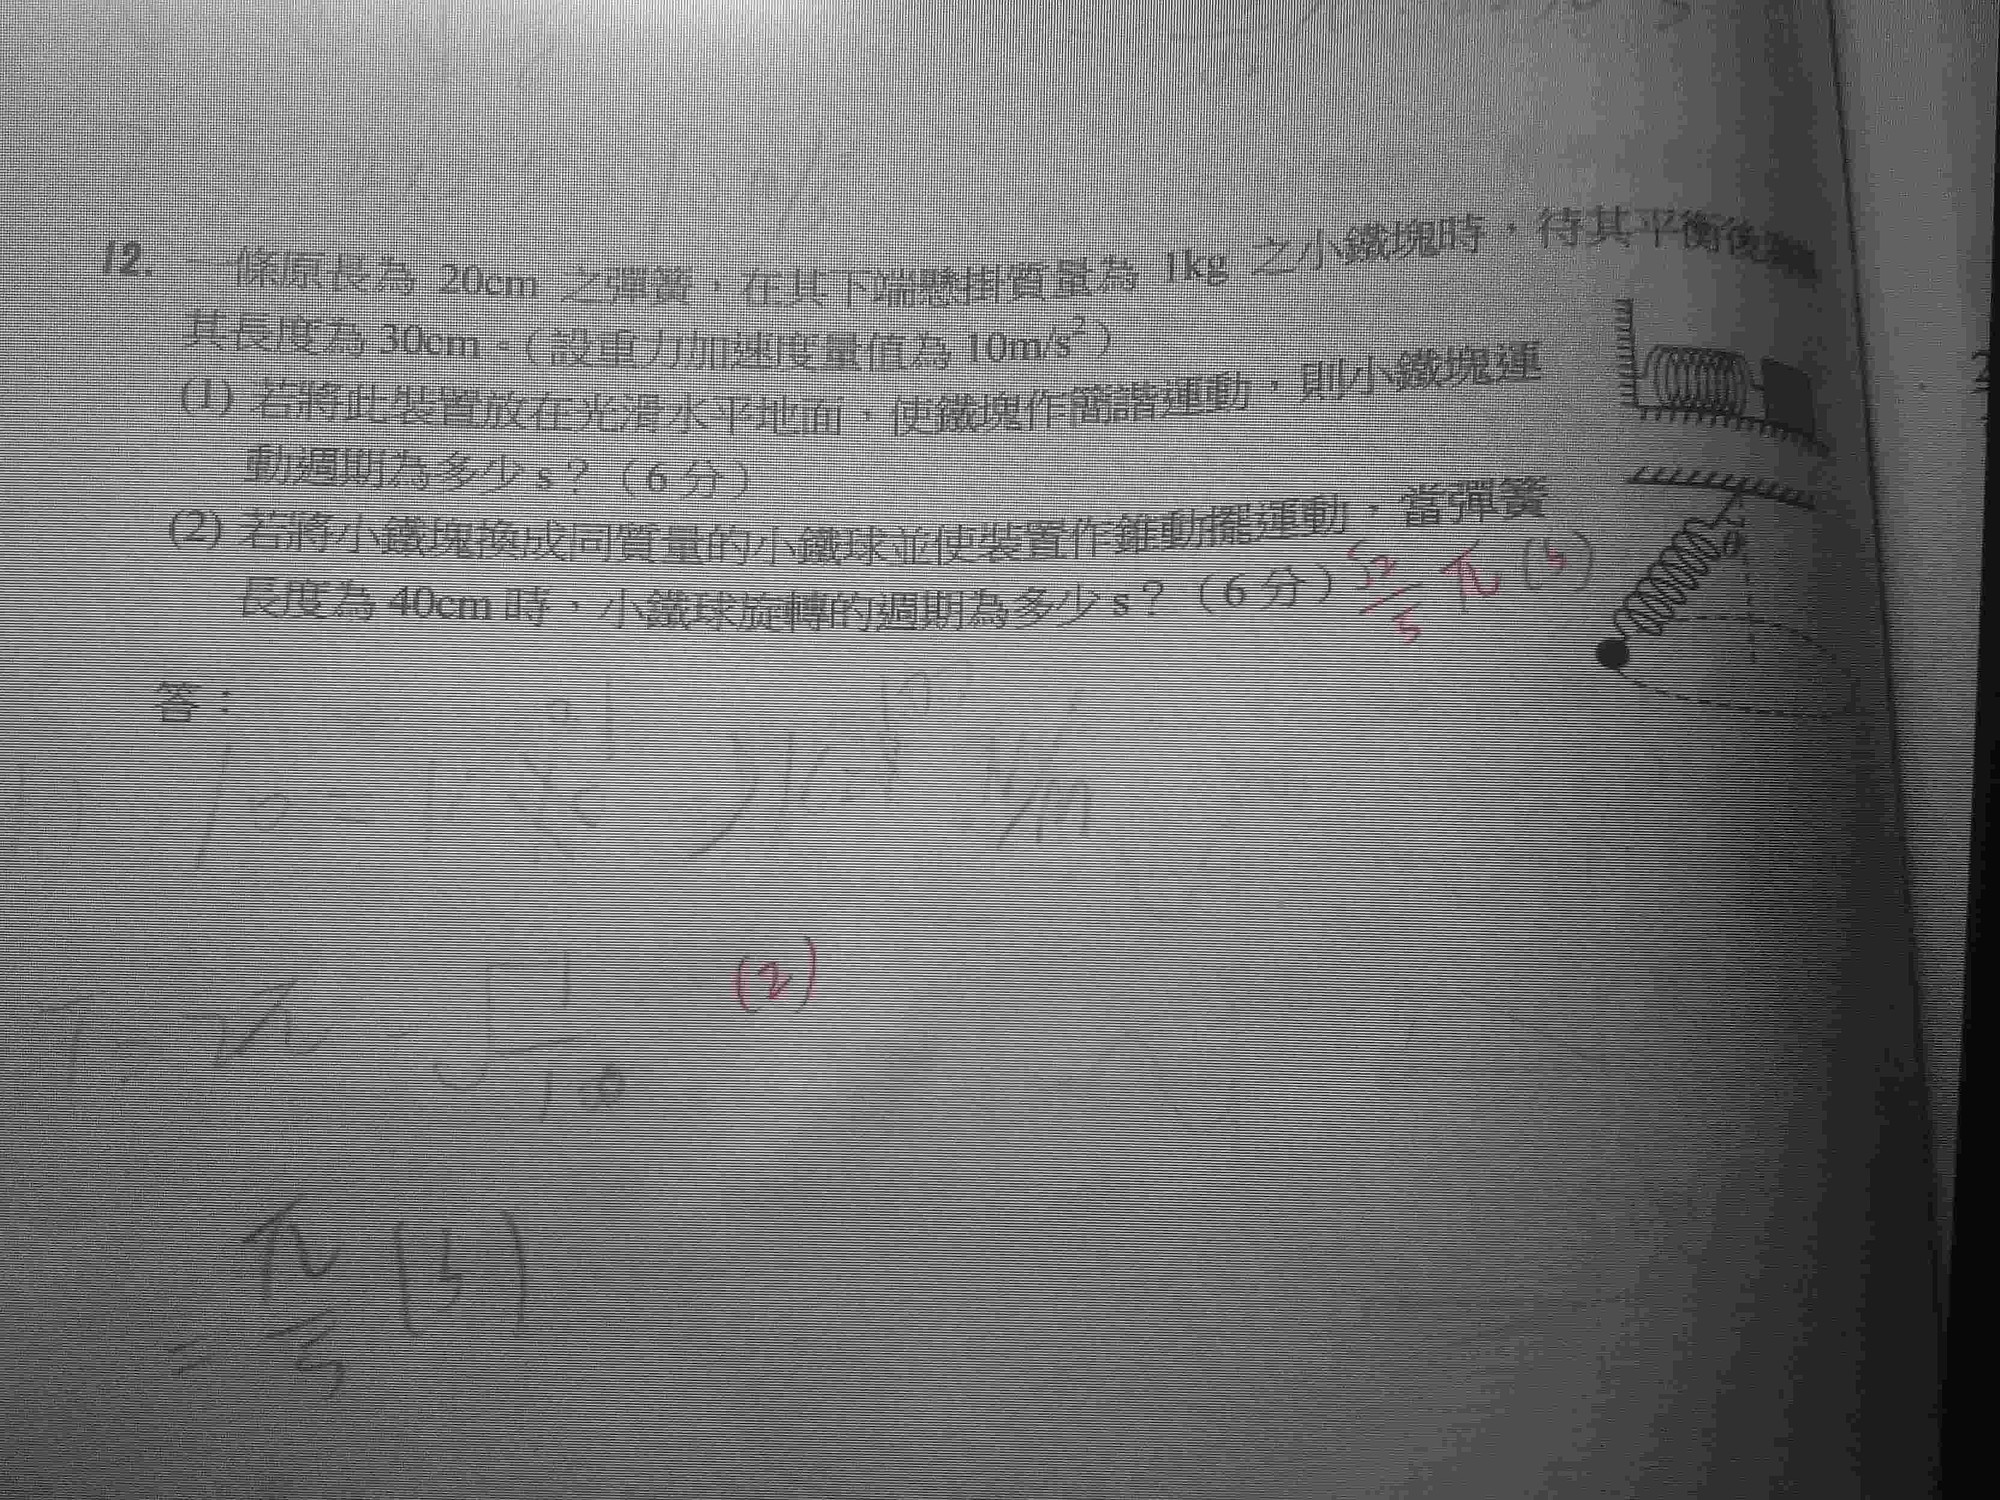 12. 一條原長為 20cm 之彈簧，在其下端懸掛質量為 1kg 之小鐵塊時，待其平衡後
其長度為 30cm。（設重力加速度量值為 10m/s²）
(1) 若將此裝置放在光滑水平地面，使鐵塊作簡諧運動，則小鐵塊運
動週期為多少 s？（6 分）
(2) 若將小鐵塊換成同質量的小鐵球並使裝置作錐動擺運動，當彈簧
長度為 40cm 時，小鐵球旋轉的週期為多少 s？（6 分） √2/5 π (s)
θ
答：
(2)
T = 2π √1/100
= π/5 (s)
2